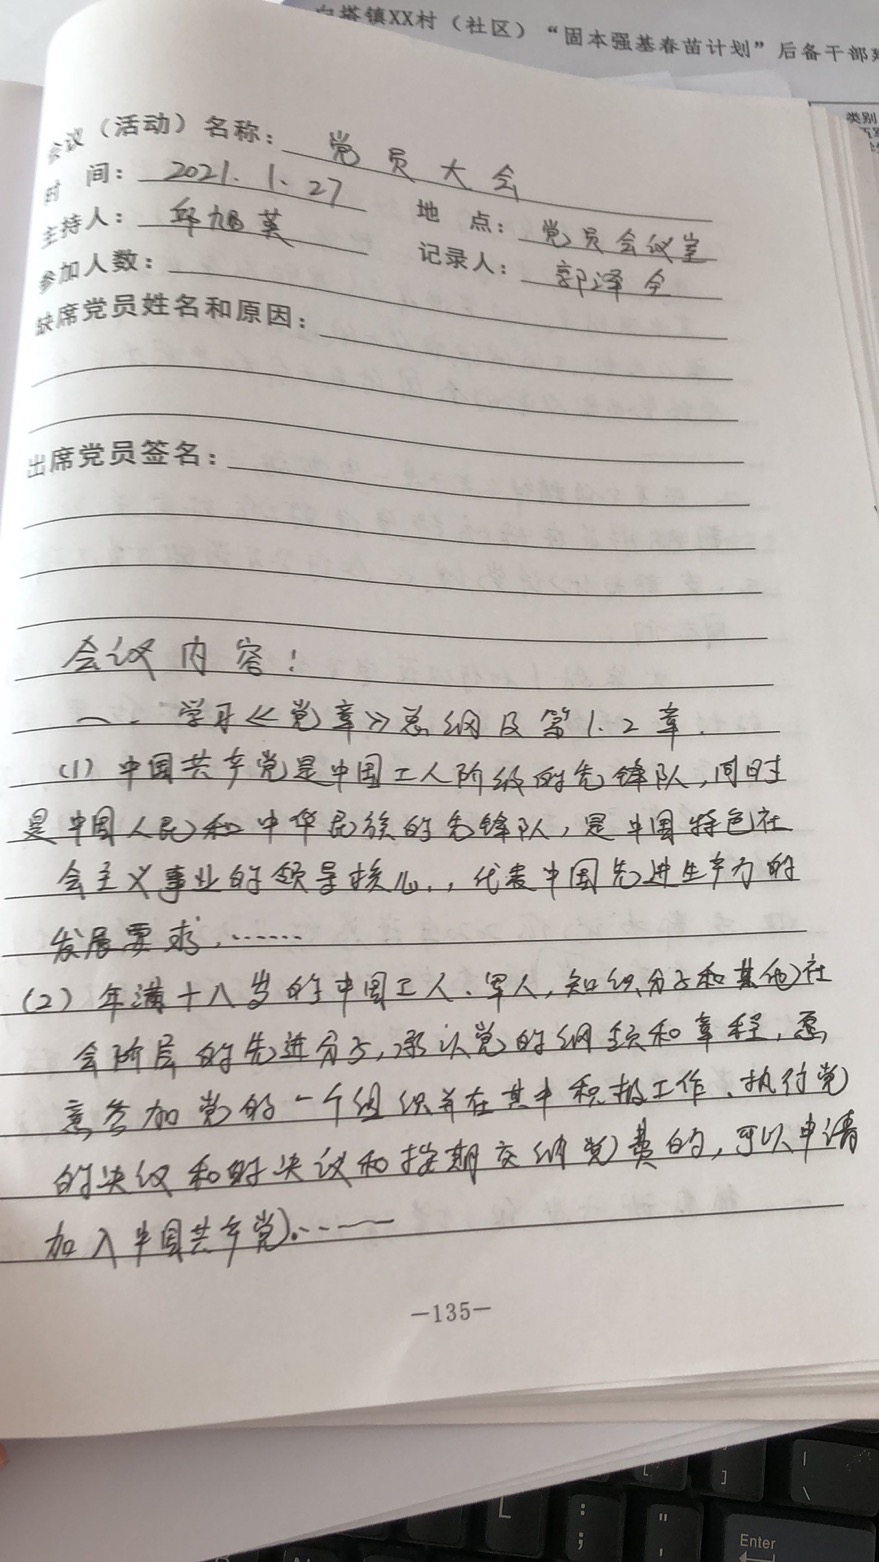 白塔镇XX村（社区）“固本强基春苗计划”后备干部
类别
会议（活动）名称：党员大会
时 间：2021.1.27 地 点：党员会议室
主持人：邱旭英 记录人：郭泽全
参加人数：
缺席党员姓名和原因：
出席党员签名：
会议内容：
一、学习《党章》总纲及第1.2章.
(1) 中国共产党是中国工人阶级的先锋队，同时
是中国人民和中华民族的先锋队，是中国特色社
会主义事业的领导核心，代表中国先进生产力的
发展要求，……
(2) 年满十八岁的中国工人、军人，知识分子和其他社
会阶层的先进分子，承认党的纲领和章程，愿
意参加党的一个组织并在其中积极工作、执行党
的决议和时决议和按期交纳党费的，可以申请
加入中国共产党……
—135—
L
:
;
"
'
]
\
Enter